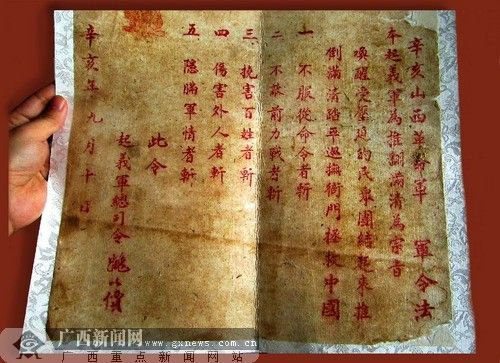 辛亥山西革命軍 軍令法
本起義軍為推翻滿清為宗旨
喚醒受壓迫的民眾團結起來推
倒滿清踏平巡撫衙門拯救中國
一 不服從命令者斬
二 不前力戰者斬
三 擾害百姓者斬
四 傷害外人者斬
五 隱瞞軍情者斬
此令
起義軍總司令 姚以價
辛亥年九月十日
广西新闻网
www.gxnews.com.cn
广西重点新闻网站